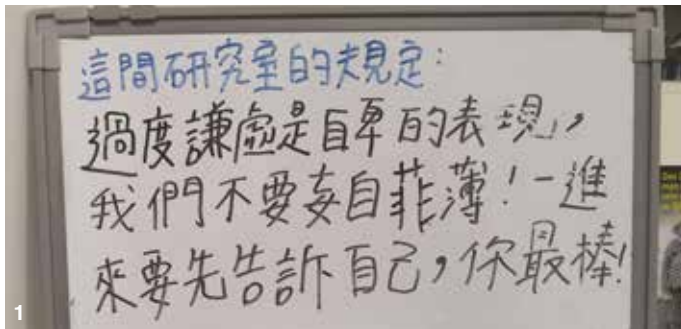 這間研究室的規定：
過度謙虛是自卑的表現，
我們不要妄自菲薄！一進
來要先告訴自己，你最棒！
1